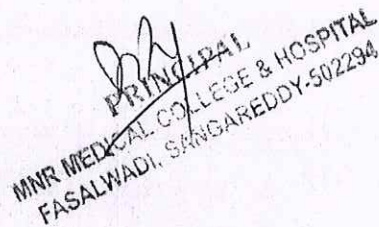 PRINCIPAL
MNR MEDICAL COLLEGE & HOSPITAL
FASALWADI, SANGAREDDY-502294